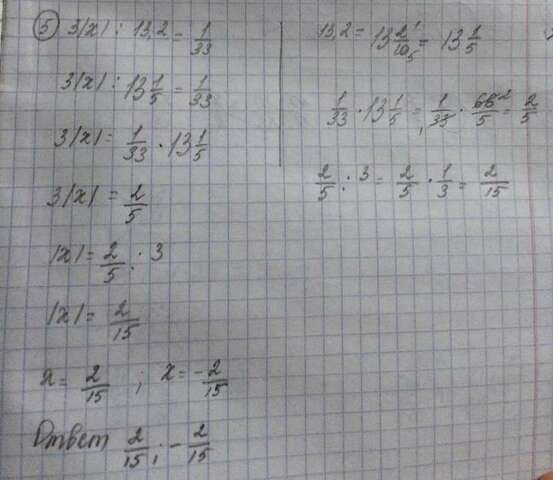 5) 3|x| : 13,2 = 1/33
3|x| : 13 1/5 = 1/33
3|x| = 1/33 · 13 1/5
3|x| = 2/5
|x| = 2/5 : 3
|x| = 2/15
x = 2/15 ; x = -2/15
Ответ 2/15 ; - 2/15
13,2 = 13 2/10 = 13 1/5
1/33 · 13 1/5 = 1/33 · 66/5 = 2/5
2/5 : 3 = 2/5 · 1/3 = 2/15